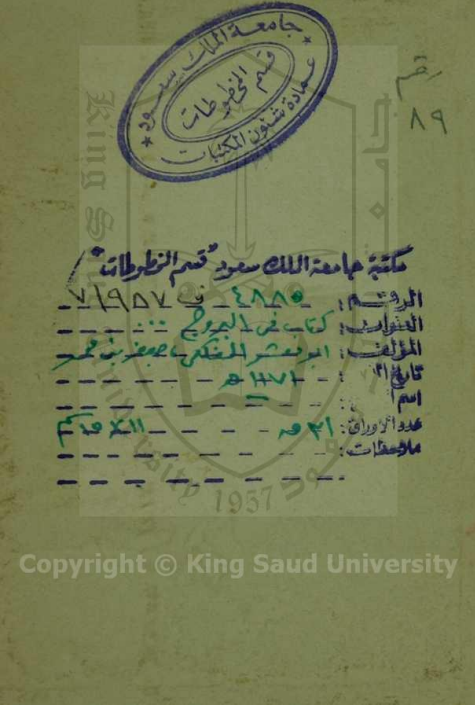 جامعة الملك سعود
قسم المخطوطات
عمادة شئون المكتبات
رقم
٨٩
مكتبة جامعة الملك سعود "قسم المخطوطات"
الرقم: ٤٨٨٥ ف ٧/٩٥٧
العنوان: كتاب في البروج
المؤلف: ابو معشر الفلكي، جعفر بن محمد
تاريخ ١١٧١هـ
اسم
عدد الأوراق: ٣١ ق
ملاحظات:
1957
Copyright © King Saud University